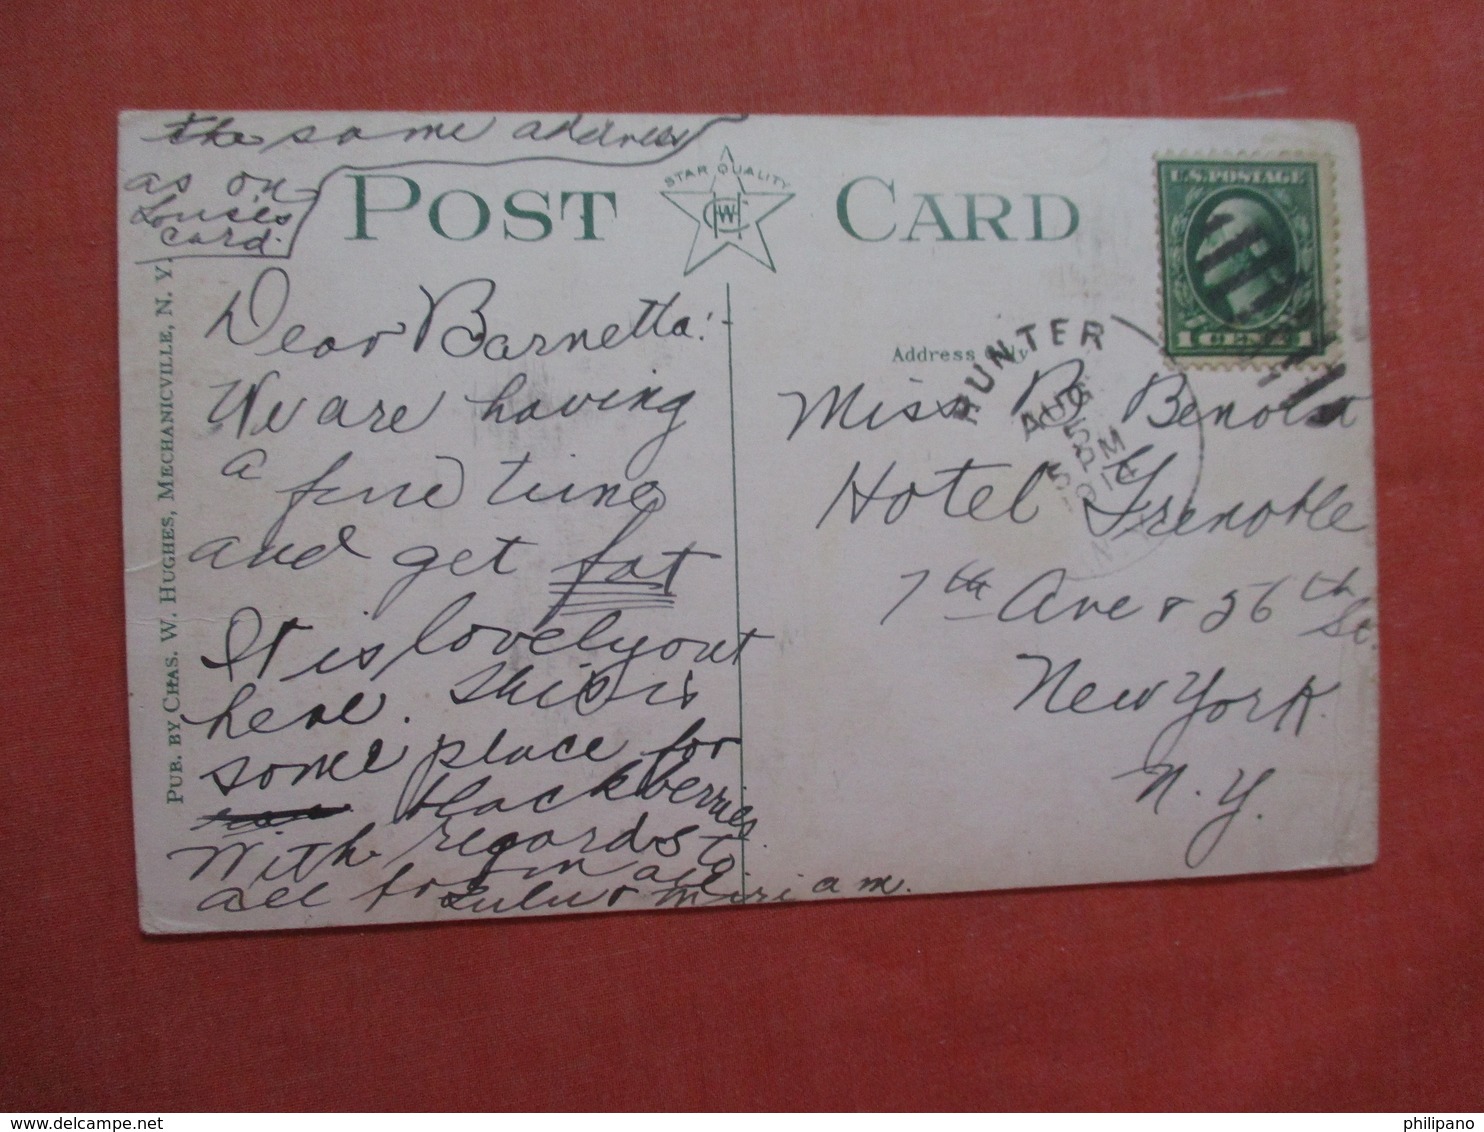 the same address
as on
Louise's
card.
POST CARD
STAR QUALITY
U.S. POSTAGE
1 CENT 1
HUNTER
AUG
5
PM
N.Y.
Address Only
PUB. BY CHAS. W. HUGHES, MECHANICVILLE, N. Y.
Dear Barnetta:-
We are having
a fine time
and get fat
It is lovely out
here. This is
some place for
blackberries
With regards to
all from all
Lulu & Miriam.
Miss B Benoit
Hotel Grenoble
7th Ave & 56th
St.
New York
N.Y.
philipano
delcampe.net